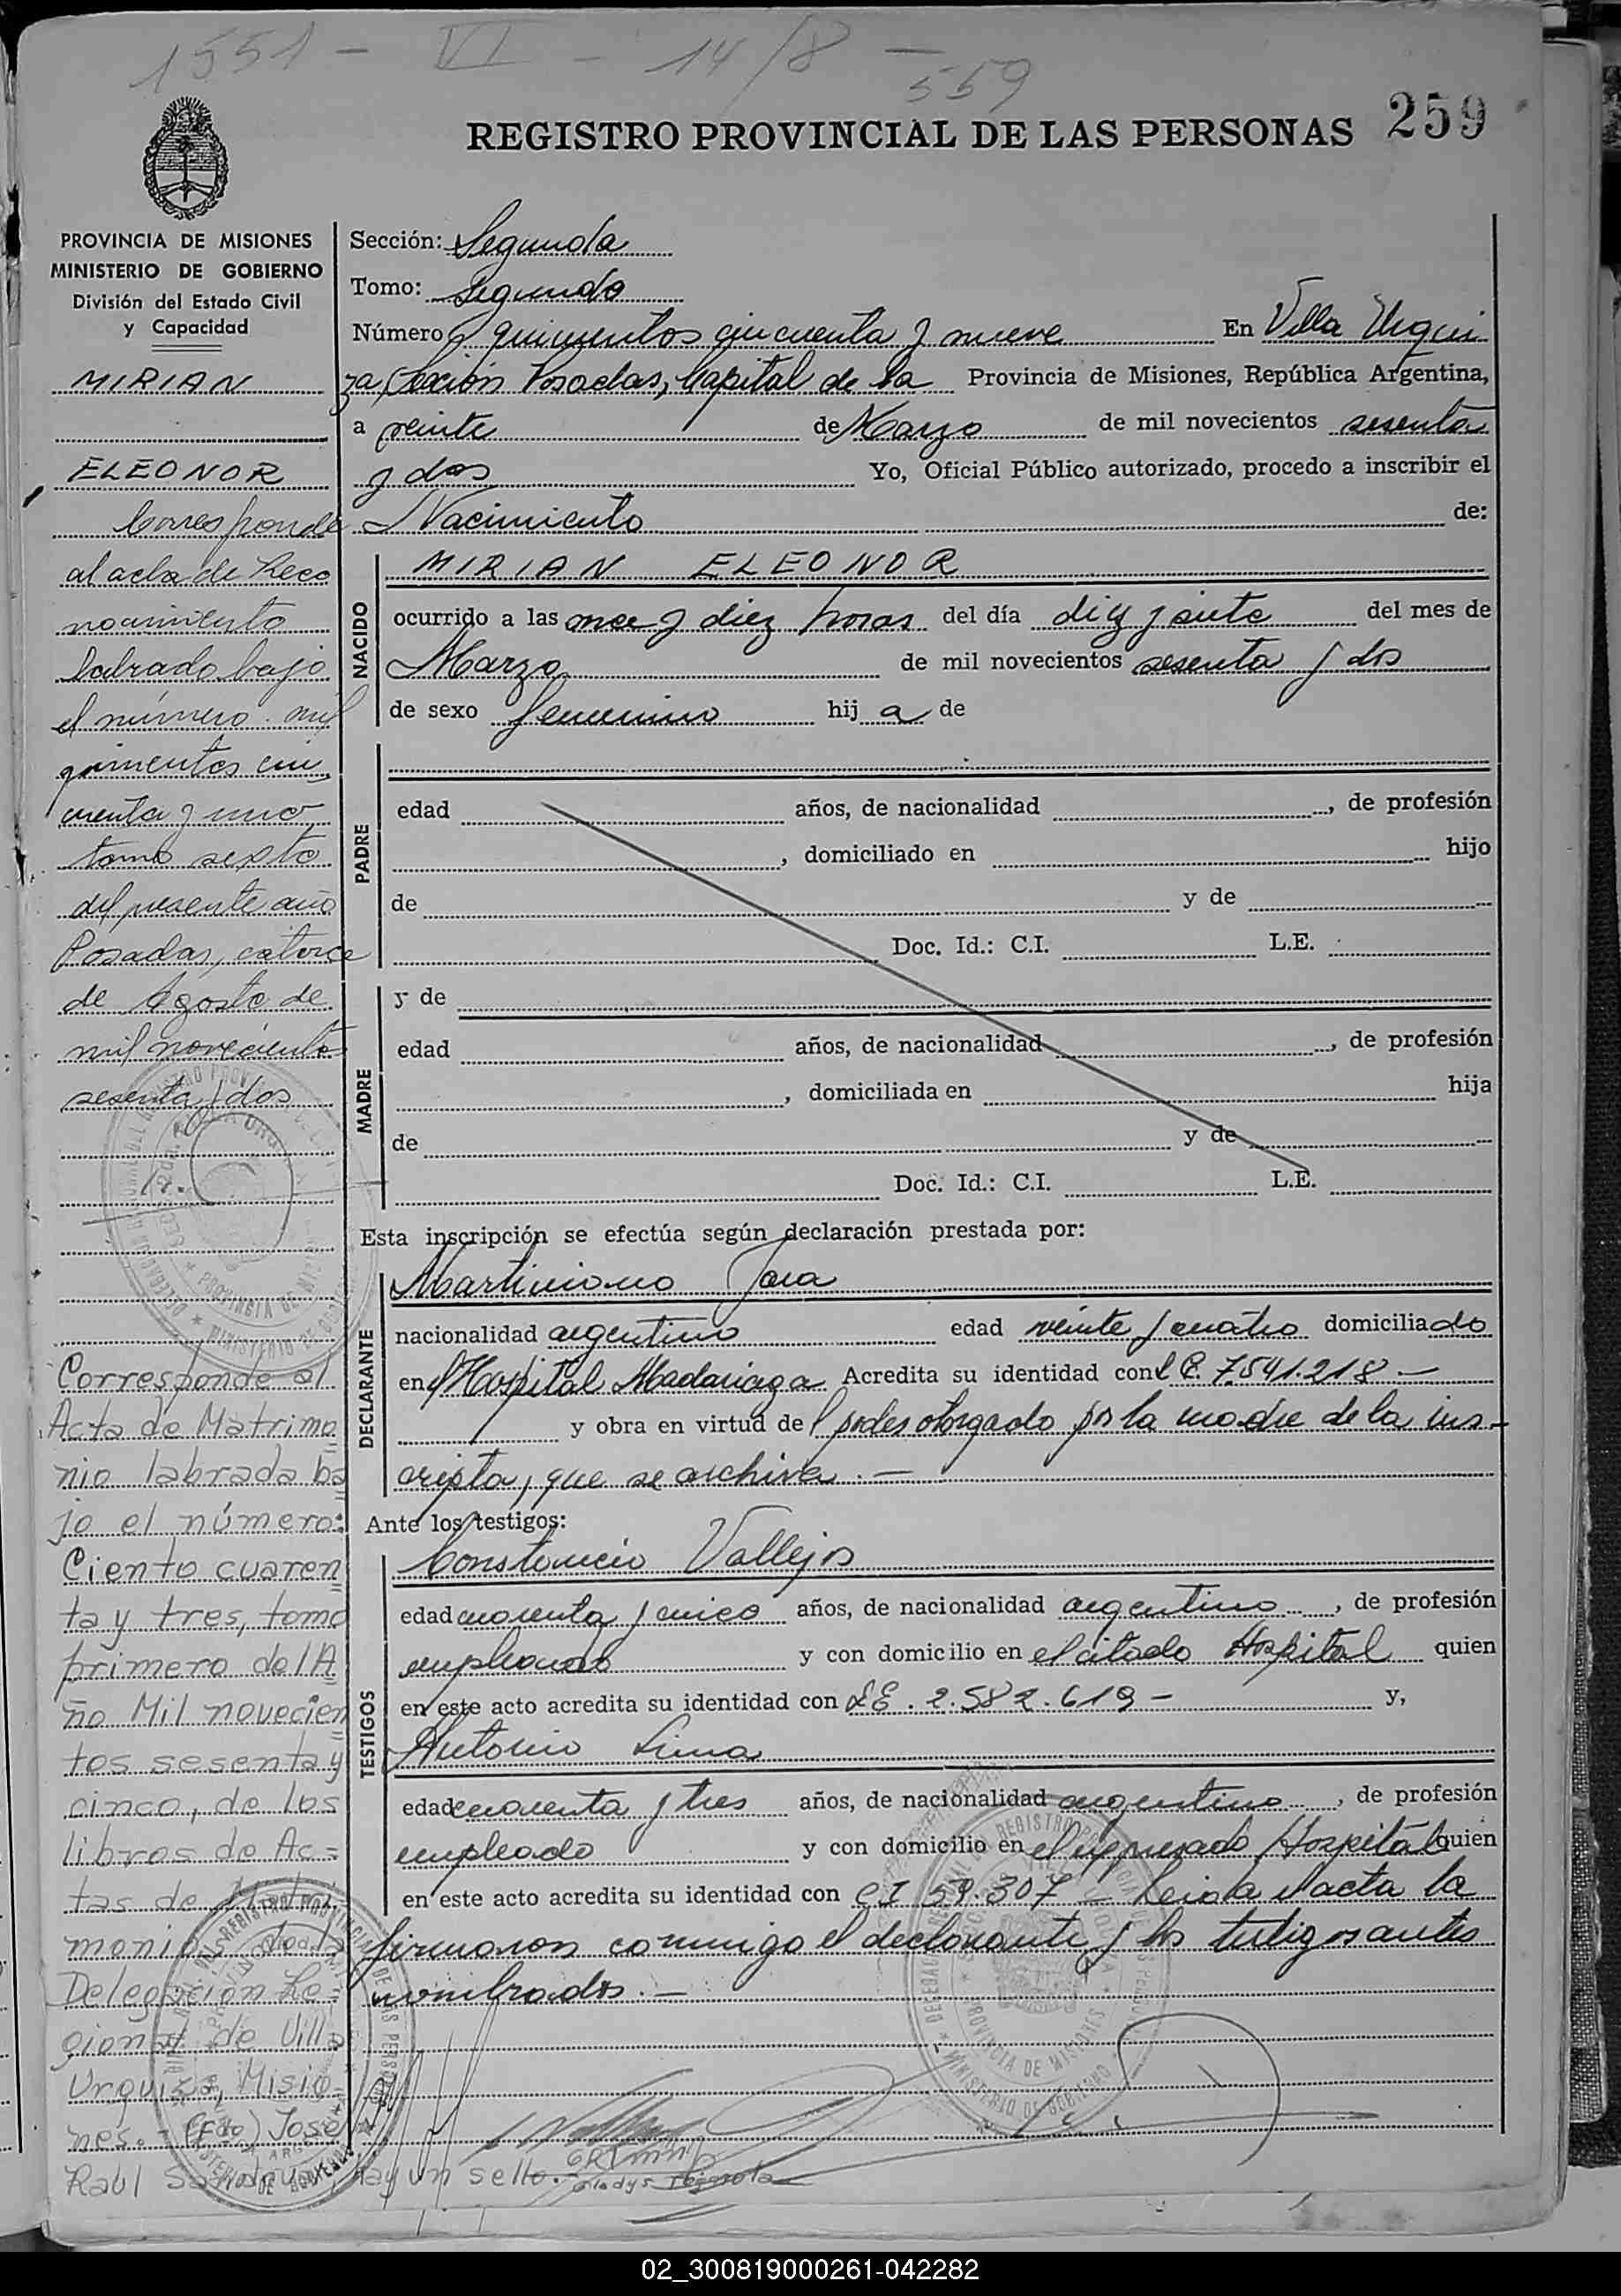 1551 - VI - 14/8 -
559
REGISTRO PROVINCIAL DE LAS PERSONAS 259
PROVINCIA DE MISIONES
MINISTERIO DE GOBIERNO
División del Estado Civil
y Capacidad
MIRIAN
ELEONOR
Corresponde
al acta de Reco
nocimiento
labrado bajo
el número mil
quinientos cin
cuenta y uno
tomo sexto
del presente año
Posadas, catorce
de Agosto de
mil novecientos
sesenta y dos
Corresponde al
Acta de Matrimo
nio labrada ba
jo el número:
Ciento cuaren
ta y tres, tomo
primero del A
ño Mil novecien
tos sesenta y
cinco, de los
libros de Ac=
tas de Matri
monios de la
Delegación Re=
gional de Villa
Urquiza, Misio=
nes. (Fdo) José
Raúl hay un sello.
Sección: Segunda
Tomo: Segundo
Número quinientos cincuenta y nueve En Villa Urqui
za, Sección Posadas, Capital de la Provincia de Misiones, República Argentina,
a veinte de Marzo de mil novecientos sesenta
y dos Yo, Oficial Público autorizado, procedo a inscribir el
Nacimiento de:
NACIDO
MIRIAN ELEONOR
ocurrido a las once y diez horas del día diez y siete del mes de
Marzo de mil novecientos sesenta y dos
de sexo femenino hij a de
PADRE
edad años, de nacionalidad , de profesión
, domiciliado en hijo
de y de
Doc. Id.: C.I. L.E.
MADRE
y de
edad años, de nacionalidad , de profesión
, domiciliada en hija
de y de
Doc. Id.: C.I. L.E.
Esta inscripción se efectúa según declaración prestada por:
DECLARANTE
Martiniano Jara
nacionalidad argentino edad veinte y cuatro domiciliado
en el Hospital Madariaga Acredita su identidad con L E. 7.541.218.-
y obra en virtud del poder otorgado por la madre de la ins-
cripta, que se archiva.-
Ante los testigos:
TESTIGOS
Constancio Vallejos
edad cuarenta y cinco años, de nacionalidad argentino , de profesión
empleado y con domicilio en el citado Hospital quien
en este acto acredita su identidad con LE. 2.582.619- y,
Antonio Lima
edad cuarenta y tres años, de nacionalidad argentino , de profesión
empleado y con domicilio en el expresado Hospital quien
en este acto acredita su identidad con CI 59.307 - Leida el acta la
firmaron conmigo el declarante y los testigos antes
nombrados.-
Gladys
02_300819000261-042282